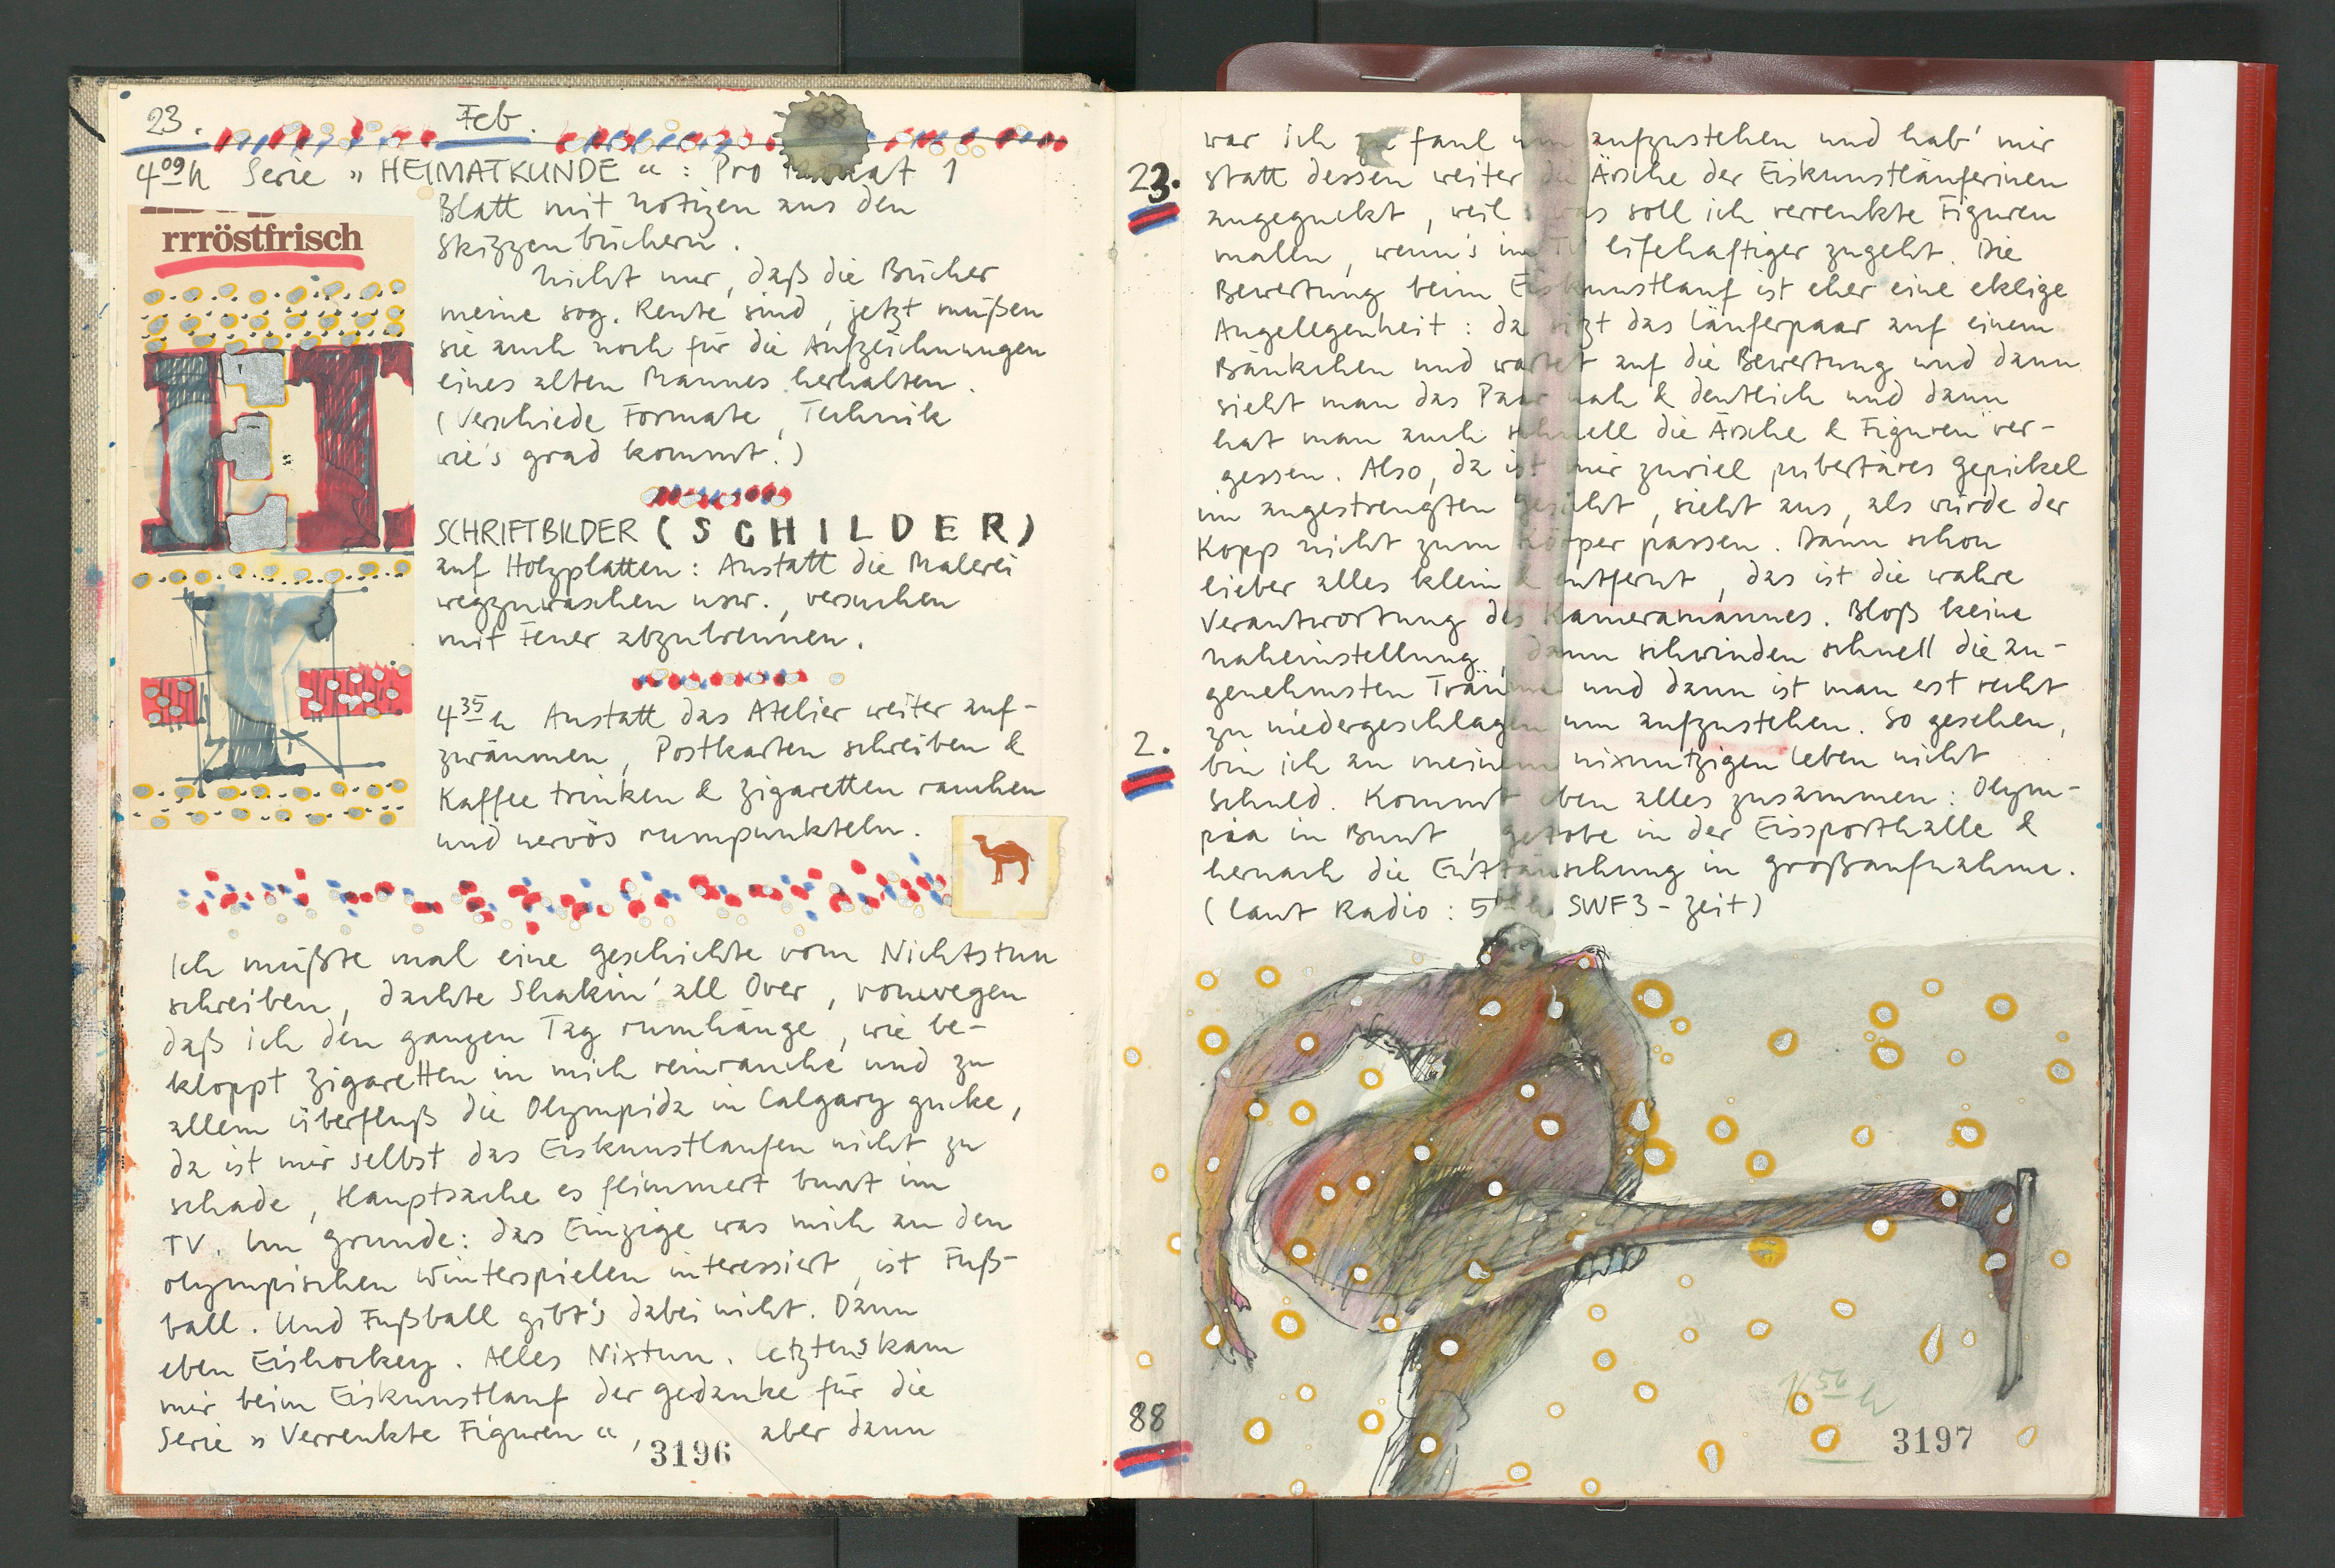 23. Feb. 88
4 09 h Serie „HEIMATKUNDE“: Pro Monat 1
Blatt mit Notizen aus den
Skizzenbüchern.
Nicht nur, daß die Bücher
meine sog. Rente sind, jetzt müßen
sie auch noch für die Aufzeichnungen
eines alten Mannes herhalten.
(Verschiede Formate, Technik
wie's grad kommt.)
rrröstfrisch
SCHRIFTBILDER (SCHILDER)
auf Holzplatten: Anstatt die Malerei
wegzuwaschen usw., versuchen
mit Feuer abzubrennen.
4 35 h Anstatt das Atelier weiter auf-
zuräumen, Postkarten schreiben &
Kaffee trinken & Zigaretten rauchen
und nervös rumpunkteln.
Ich müßte mal eine Geschichte vom Nichtstun
schreiben, dachte Shakin' all Over, vonwegen
daß ich den ganzen Tag rumhänge, wie be-
kloppt Zigaretten in mich reinrauche und zu
allem Überfluß die Olympida in Calgary gucke,
da ist mir selbst das Eiskunstlaufen nicht zu
schade, Hauptsache es flimmert bunt im
TV. Im Grunde: das Einzige was mich an den
olympischen Winterspielen interessiert, ist Fuß-
ball. Und Fußball gibt's dabei nicht. Dann
eben Eishockey. Alles Nixtun. Letztens kam
mir beim Eiskunstlauf der Gedanke für die
Serie „Verrenkte Figuren“, aber dann
3196
war ich zu faul um aufzustehen und hab' mir
23.
statt dessen weiter die Ärsche der Eiskunstläuferinen
angeguckt, weil: was soll ich verrenkte Figuren
malln, wenn's im TV lifehaftiger zugeht. Die
Bewertung beim Eiskunstlauf ist eher eine eklige
Angelegenheit: da sitzt das Läuferpaar auf einem
Bänkchen und wartet auf die Bewertung und dann
sieht man das Paar nah & deutlich und dann
hat man auch schnell die Ärsche & Figuren ver-
gessen. Also, da ist mir zuviel pubertäres Gepickel
im angestrengten Gesicht, sieht aus, als würde der
Kopp nicht zum Körper passen. Dann schon
lieber alles klein & entfernt, das ist die wahre
Verantwortung des Kameramannes. Bloß keine
Naheinstellung, dann schwinden schnell die an-
genehmsten Träume und dann ist man erst recht
zu niedergeschlagen um aufzustehen. So gesehen,
2.
bin ich an meinem nixnutzigen Leben nicht
Schuld. Kommt eben alles zusammen: Olym-
piaa in Bunt, Getobe in der Eissporthalle &
hernach die Enttäuschung in Großaufnahme.
(Laut Radio: 5 h SWF3-Zeit)
88
3197